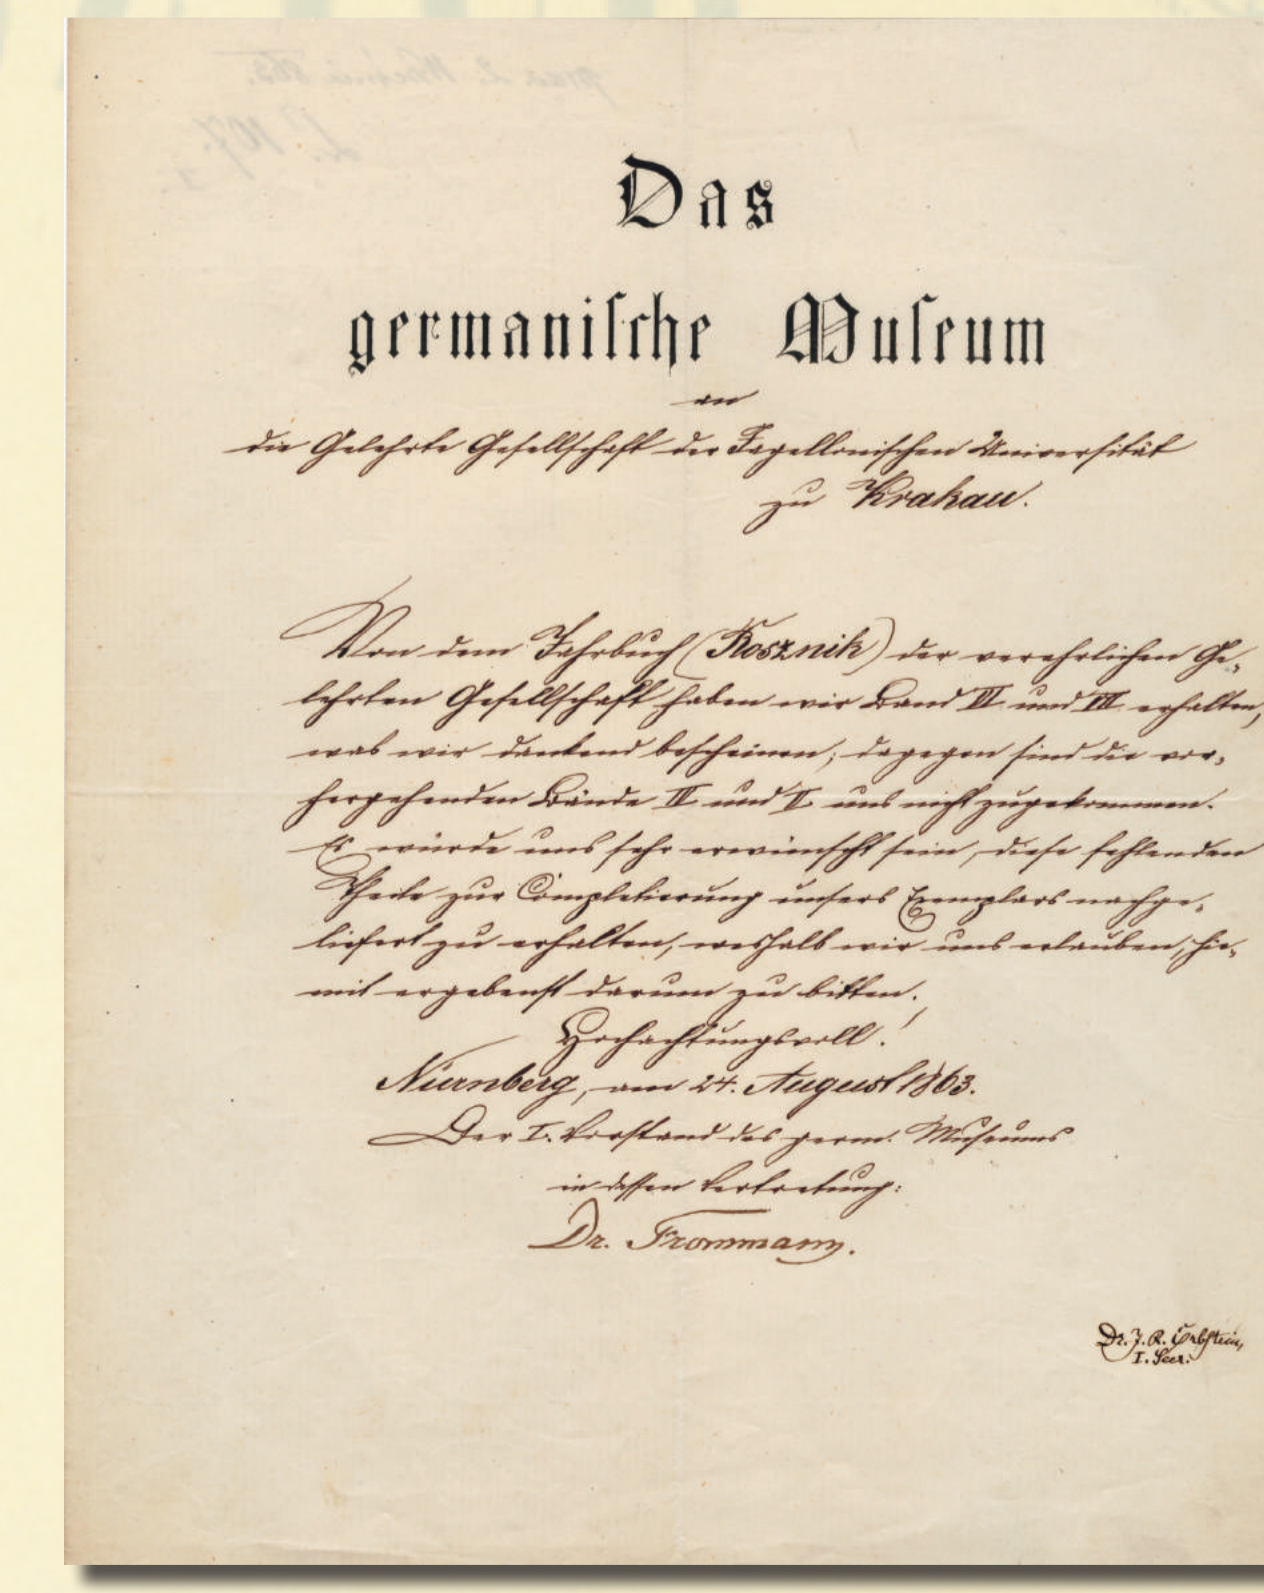 Das
germaniſche Muſeum
an
die Gelehrte Gesellschaft der Jagellonischen Universität
zu Krakau.
Von dem Jahrbuch (Rosznik) der verehrlichen Ge-
lehrten Gesellschaft haben wir Band VI und VII erhalten,
was wir dankend bescheinen; dagegen sind die vor-
hergehenden Bände IV und V uns nicht zugekommen.
Es würde uns sehr erwünscht sein, diese fehlenden
Theile zur Completierung unsers Exemplars nachge-
liefert zu erhalten, weshalb wir uns erlauben, hie-
mit ergebenst darum zu bitten.
Hochachtungsvoll!
Nürnberg, am 24. August 1863.
Der I. Vorstand des germ. Museums
in dessen Vertretung:
Dr. Frommann.
Dr. J. R. Erbstein,
I. Secr.